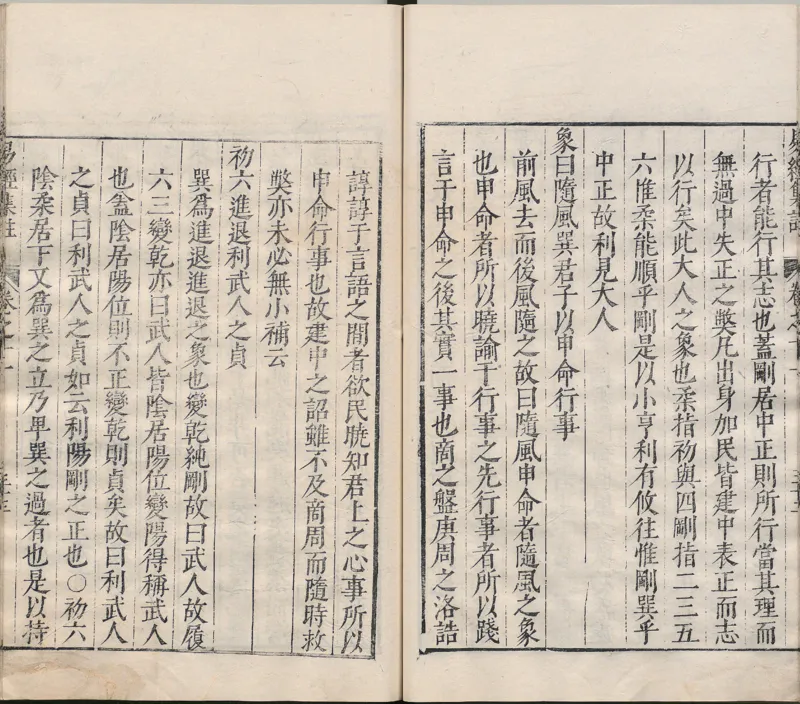 行者能行其志也蓋剛居中正則所行當其理而
無過中失正之弊凡出身加民皆建中表正而志
以行矣此大人之象也柔指初與四剛指二三五
六惟柔能順乎剛是以小亨利有攸往惟剛巽乎
中正故利見大人
象曰隨風巽君子以申命行事
前風去而後風隨之故曰隨風申命者隨風之象
也申命者所以曉諭于行事之先行事者所以踐
言于申命之後其實一事也商之盤庚周之洛誥
諄諄于言語之間者欲民曉知君上之心事所以
申命行事也故建中之詔雖不及商周而隨時救
獘亦未必無小補云
初六進退利武人之貞
巽為進退進退之象也變乾純剛故曰武人故履
六三變乾亦曰武人皆陰居陽位變陽得稱武人
也蓋陰居陽位則不正變乾則貞矣故曰利武人
之貞曰利武人之貞如云利陽剛之正也〇初六
陰柔居下又為巽之主乃卑巽之過者也是以持
易經集註
卷之十一